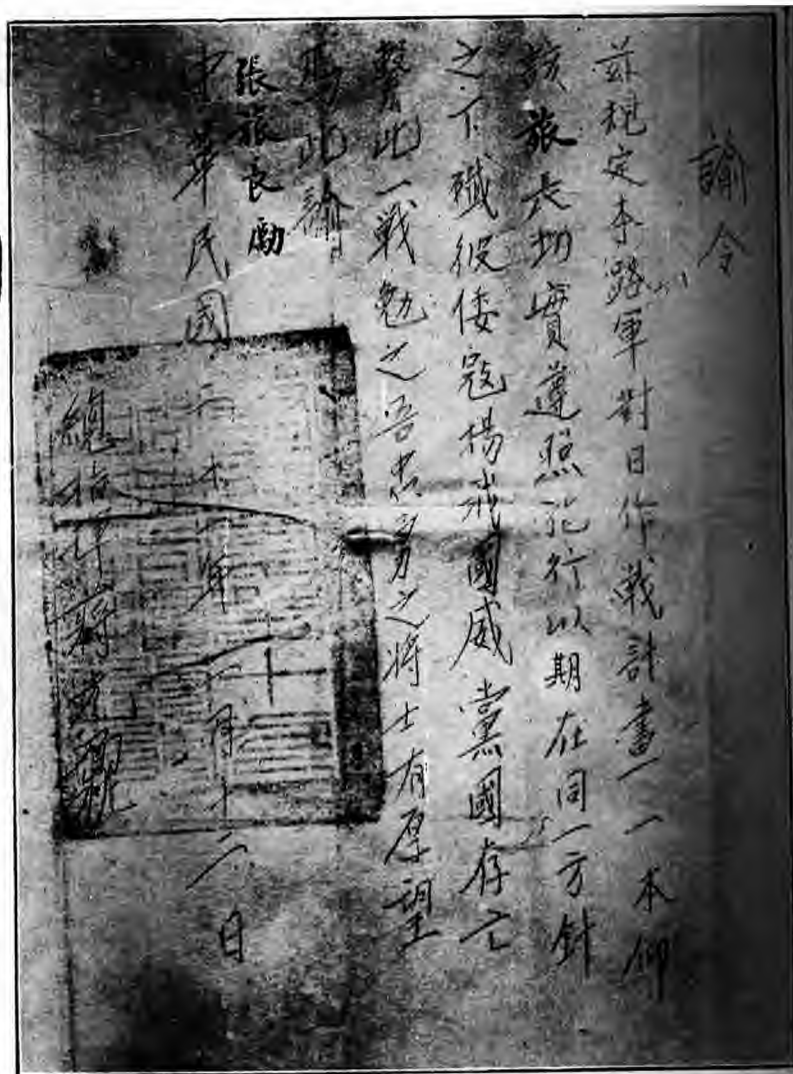 諭令
茲規定本路軍對日作戰計畫一本仰
該旅長切實遵照施行以期在同一方針
之下殲彼倭寇揚我國威黨國存亡
繫此一戰勉之吾忠勇之將士有厚望
焉此諭
張旅長勵
中華民國二十一年一月十六日
總指揮蔣光鼐